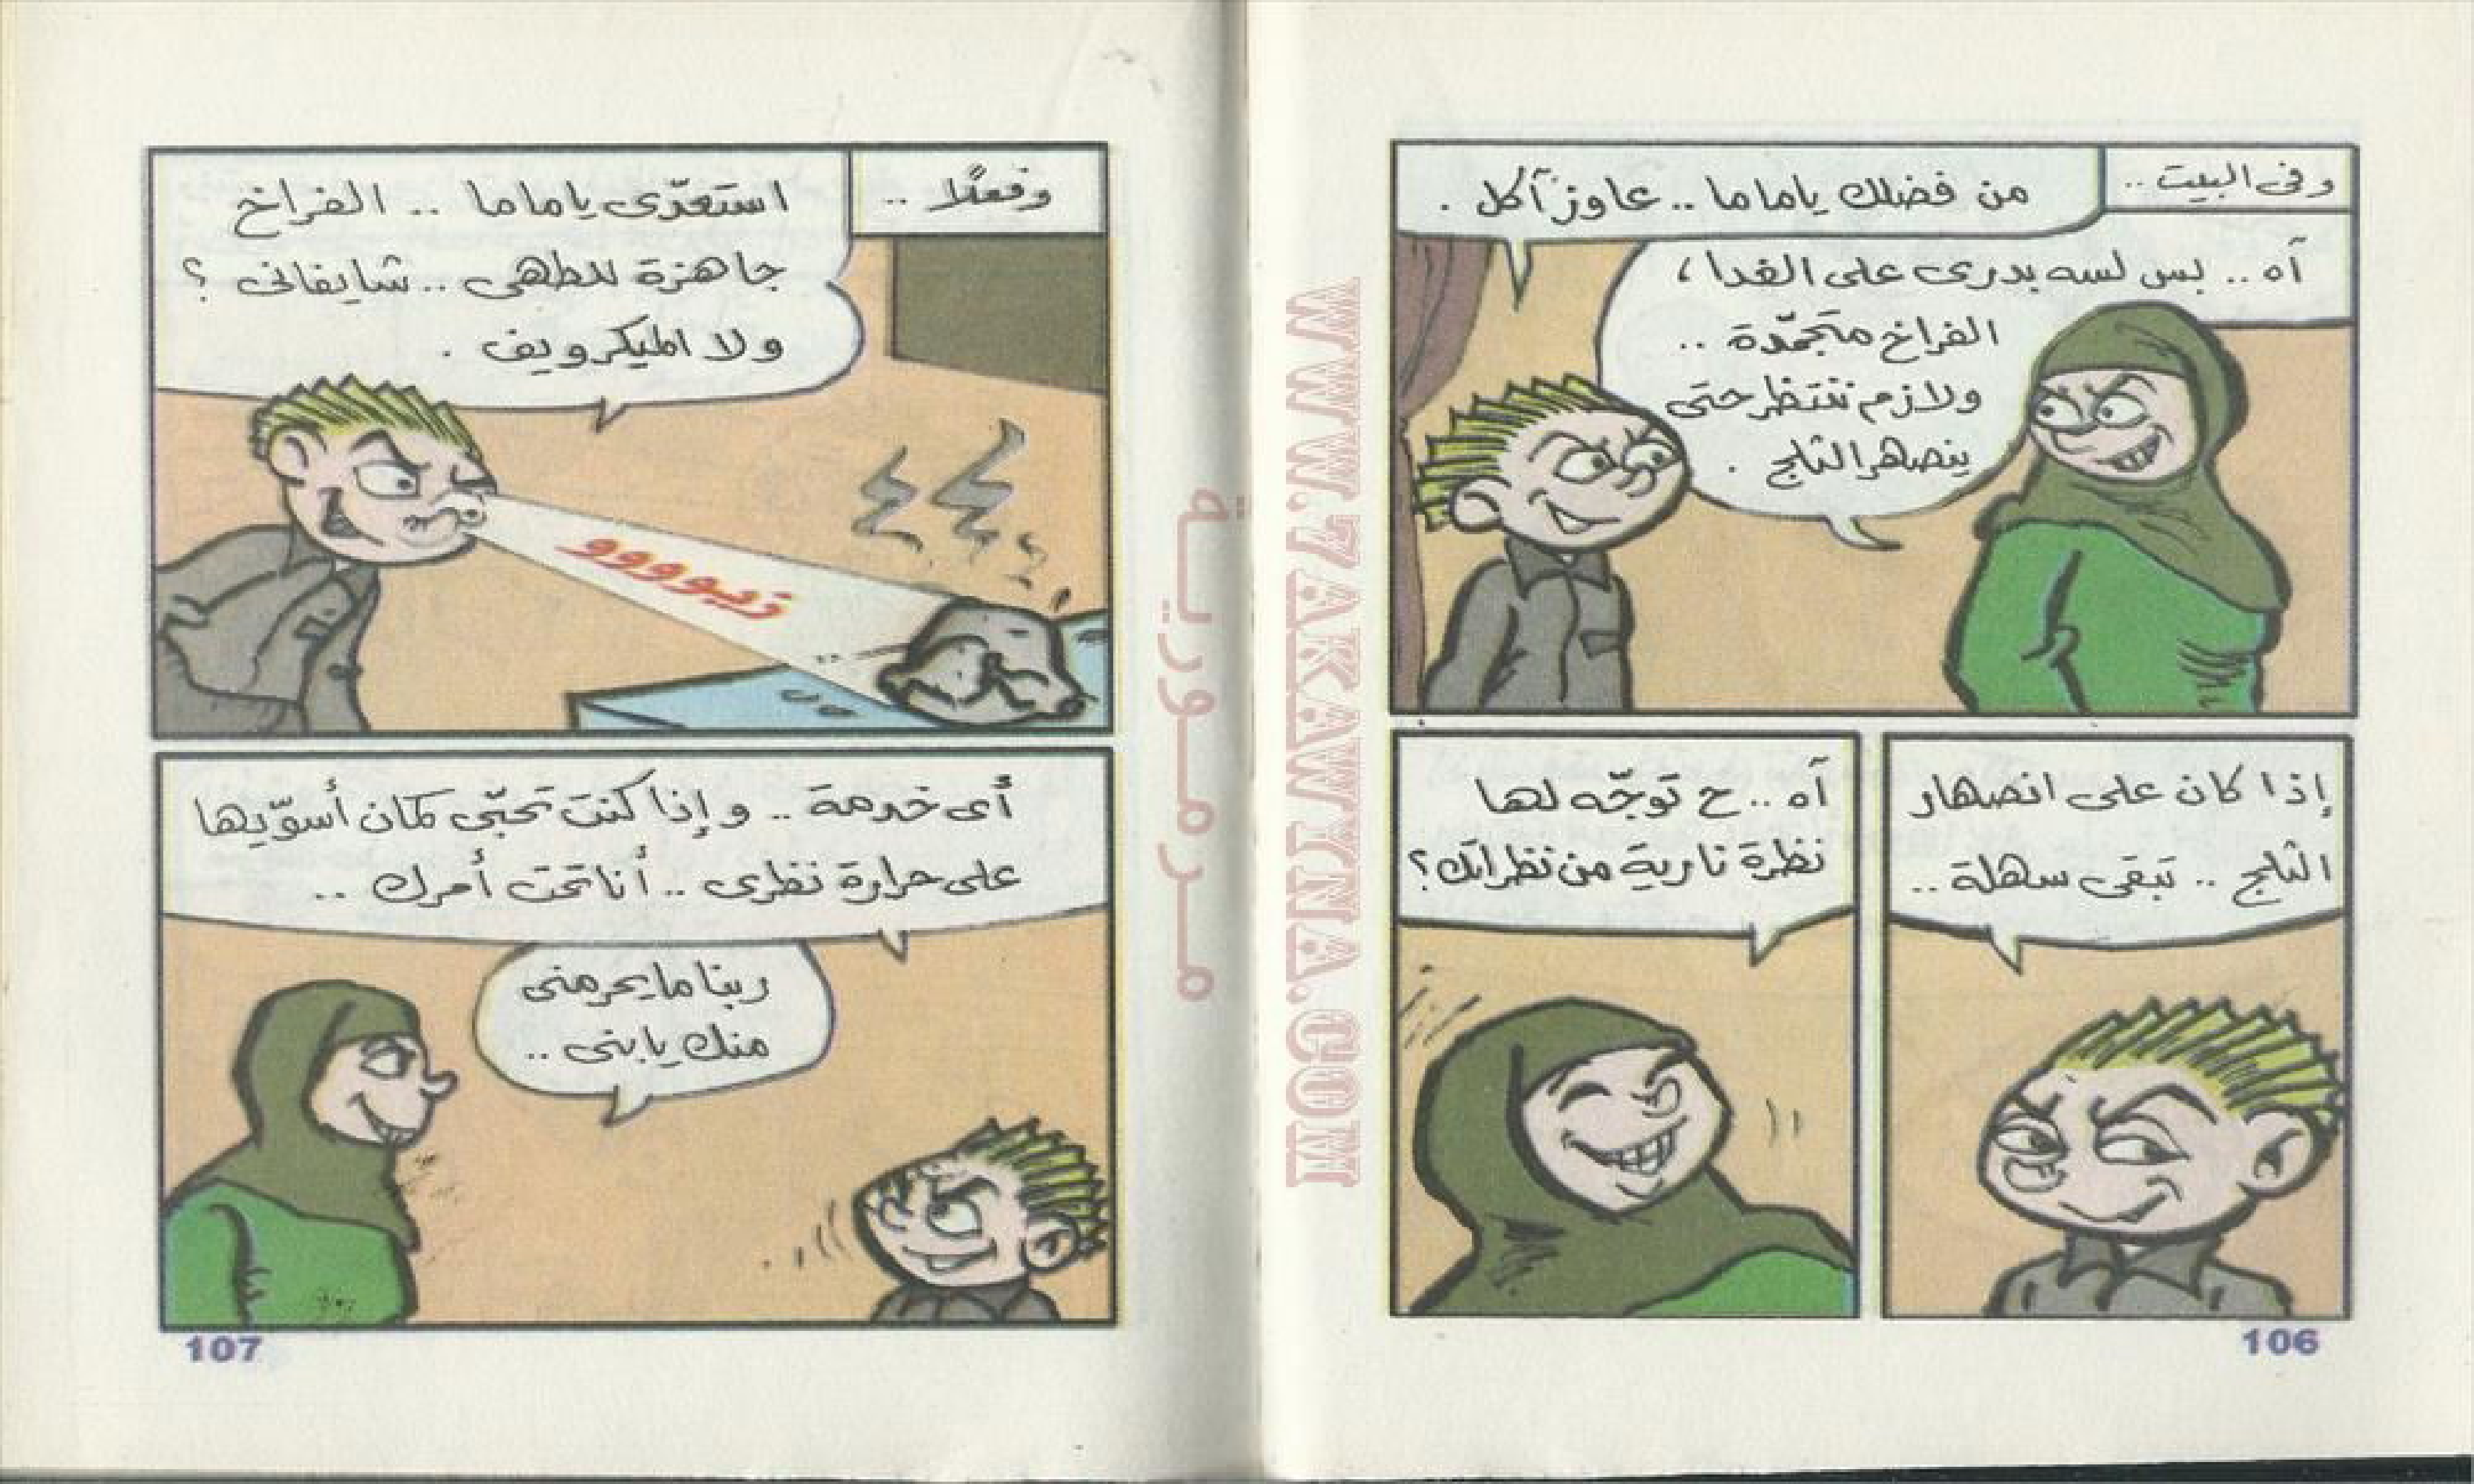 وفى البيت ..
من فضلك ياماما .. عاوز آكل .
آه .. بس لسه بدرى على الغدا ،
الفراخ متجمّدة ..
ولازم ننتظر حتى
ينصهر الثلج .
إذا كان على انصهار
الثلج .. تبقى سهلة ..
آه .. ح توجّه لها
نظرة نارية من نظراتك ؟
106
WWW.7AKAWINA.COM
مرمورية
وفعلاً ..
استعدّى ياماما .. الفراخ
جاهزة للطهى .. شايفانى ؟
ولا الميكرويف .
تيوووو
أى خدمة .. وإذا كنت تحبّى كمان أسوّيها
على حرارة نظرى .. أنا تحت أمرك ..
ربنا ما يحرمنى
منك يابنى ..
107